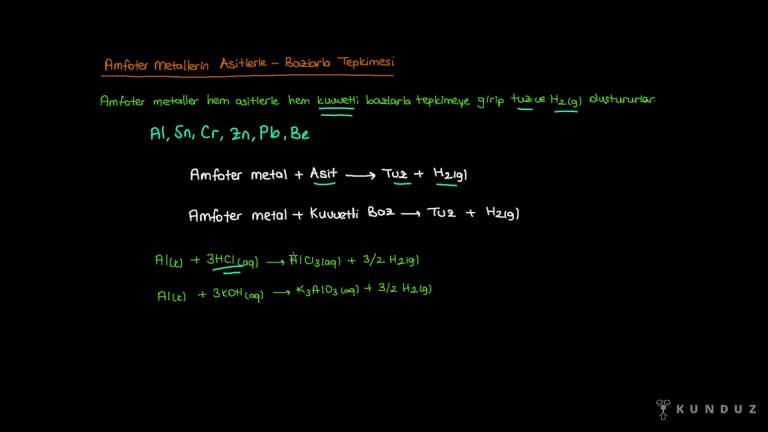 Amfoter Metallerin Asitlerle - Bazlarla Tepkimesi
Amfoter metaller hem asitlerle hem kuvvetli bazlarla tepkimeye girip tuz ve H2(g) oluştururlar.
Al, Sn, Cr, Zn, Pb, Be
Amfoter metal + Asit → Tuz + H2(g)
Amfoter metal + Kuvvetli Baz → Tuz + H2(g)
Al(k) + 3HCl(aq) → AlCl3(aq) + 3/2 H2(g)
Al(k) + 3KOH(aq) → K3AlO3(aq) + 3/2 H2(g)
KUNDUZ